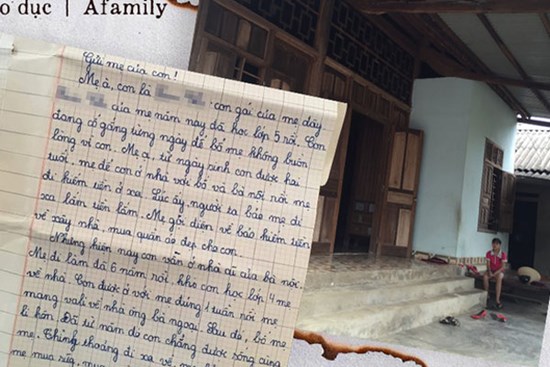 o dục | Afamily
Gửi mẹ của con!
Mẹ à, con là con gái của mẹ đây
của mẹ năm nay đã học lớp 5 rồi. Con
đang cố gắng từng ngày để bố mẹ không buồn
lòng vì con. Mẹ ạ, từ ngày sinh con được hai
tuổi, mẹ để con ở nhà với bố và bà nội rồi mẹ
đi kiếm tiền ở xa. Lúc ấy, người ta bảo mẹ đi
xa lắm tiền lắm. Mẹ gọi điện về bảo kiếm tiền
về xây nhà, mua quần áo đẹp cho con.
Nhưng hiện nay con vẫn ở nhà cũ của bà nội.
Mẹ đi làm đã 6 năm rồi, khi con học lớp 4 mẹ
về nhà. Con được ở với mẹ đúng 1 tuần rồi mẹ
mang vali về nhà ông bà ngoại. Sau đó, bố mẹ
li hôn. Đã từ năm đó con chẳng được sống cùng
mẹ. Thỉnh thoảng đi xa về, mẹ
mẹ mua sữa, mua